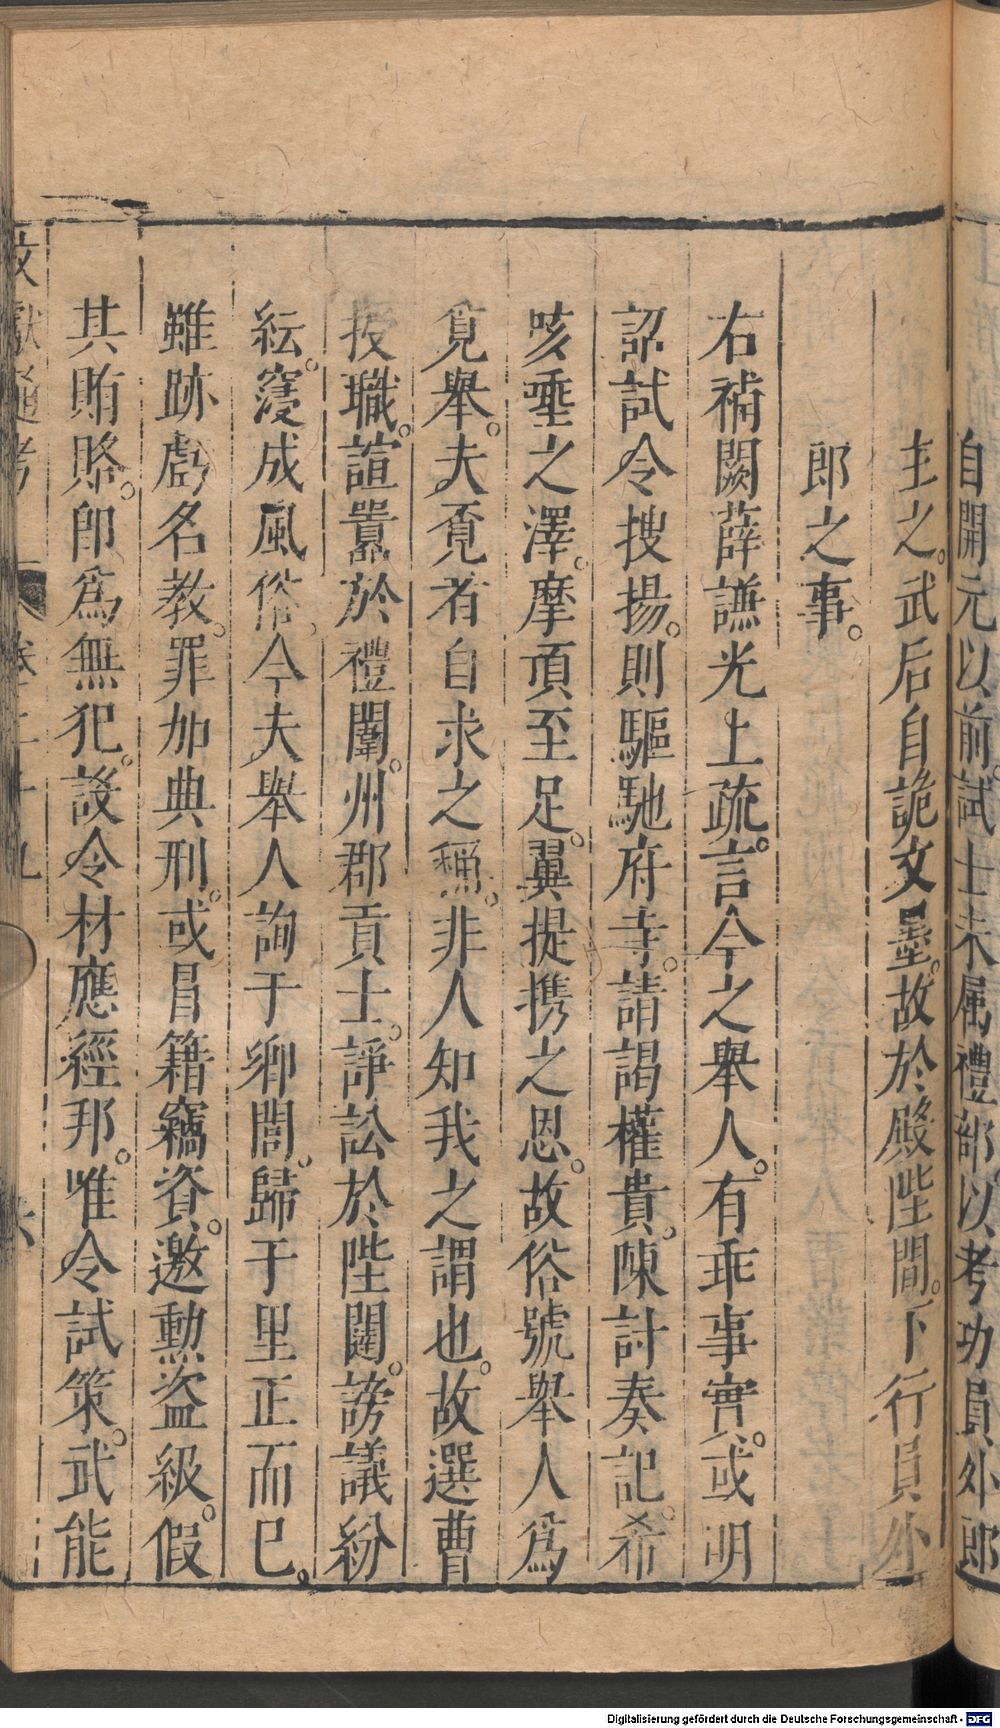 自開元以前試士未屬禮部以考功員外郎
主之。武后自詭文墨。故於殿陛間。下行員外
郎之事。
右補闕薛謙光上疏。言今之舉人。有乖事實。或明
詔試令搜揚。則驅馳府寺。請謁權貴。陳詩奏記。希
咳唾之澤。摩頂至足。冀提携之恩。故俗號舉人爲
覓舉。夫覓者自求之稱。非人知我之謂也。故選曹
授職。諠囂於禮闈。州郡貢士。諍訟於陛闥。謗議紛
紜。寖成風俗。今夫舉人詢于鄉閭。歸于里正而已。
雖跡虧名教。罪加典刑。或冒籍竊資。邀勳盜級。假
其賄賂。卽爲無犯。設令材應經邦。唯令試策。武能
文獻通考 卷二十九 六
Digitalisierung gefördert durch die Deutsche Forschungsgemeinschaft - DFG